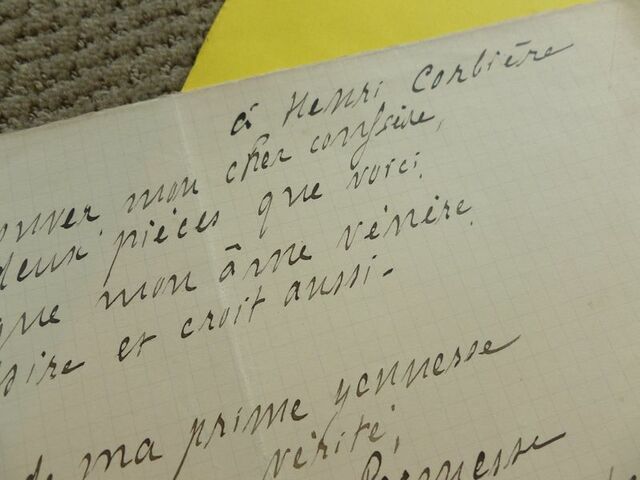 à Henri Corbière
mon cher confrère,
deux pièces que voici,
que mon âme vénère,
et croit aussi-
de ma prime yeunesse
vérité,